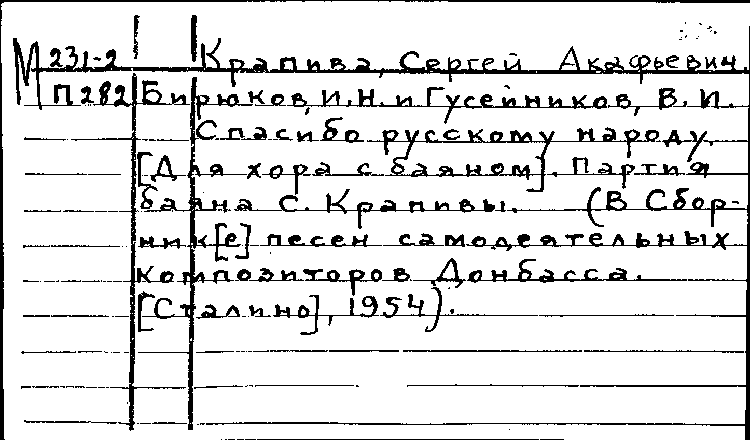 М 231-2 Крапива, Сергей Акафьевич.
П282 Бирюков, И.Н. и Гусейников, В. И.
Спасибо русскому народу.
[Для хора с баяном]. Партия
баяна С. Крапивы. (В Сбор-
ник[е] песен самодеятельных
композиторов Донбасса.
[Сталино], 1954).